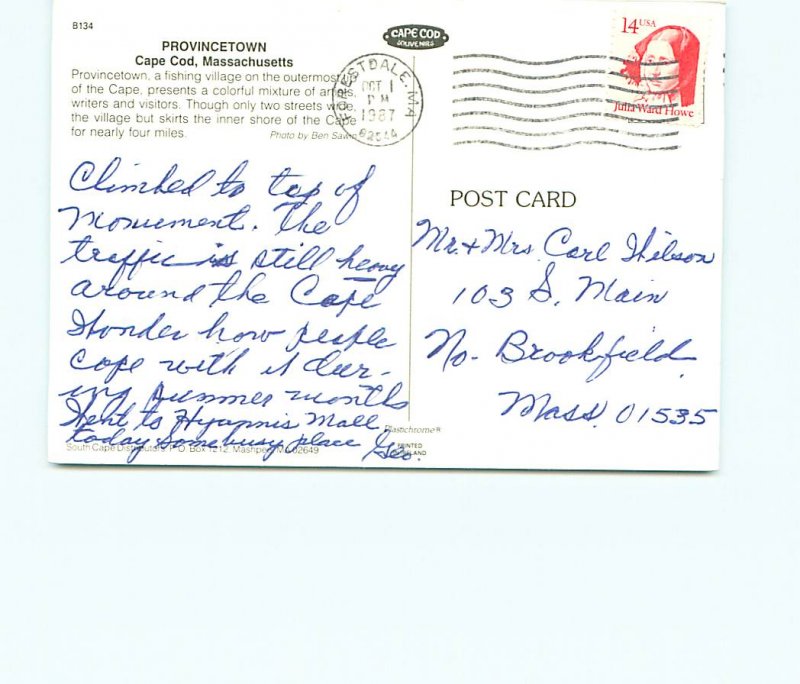 B134
PROVINCETOWN
Cape Cod, Massachusetts
Provincetown, a fishing village on the outermost
of the Cape, presents a colorful mixture of artists,
writers and visitors. Though only two streets wide,
the village but skirts the inner shore of the Cape
for nearly four miles.
Photo by Ben Sawin
CAPE COD
SOUVENIRS
FORESTDALE, MA
OCT 1
PM
1987
02644
14 USA
Julia Ward Howe
Climbed to top of
Monument. The
traffic is still heavy
around the Cape
Wonder how people
cope with it dur-
ing summer months
Went to Hyapnis Mall
today some busy place
Geo.
POST CARD
Mr. + Mrs. Carl Wilson
103 S. Main
No. Brookfield
Mass. 01535
Plastichrome®
PRINTED
South Cape Distributors, P.O. Box 1212, Mashpee, MA 02649